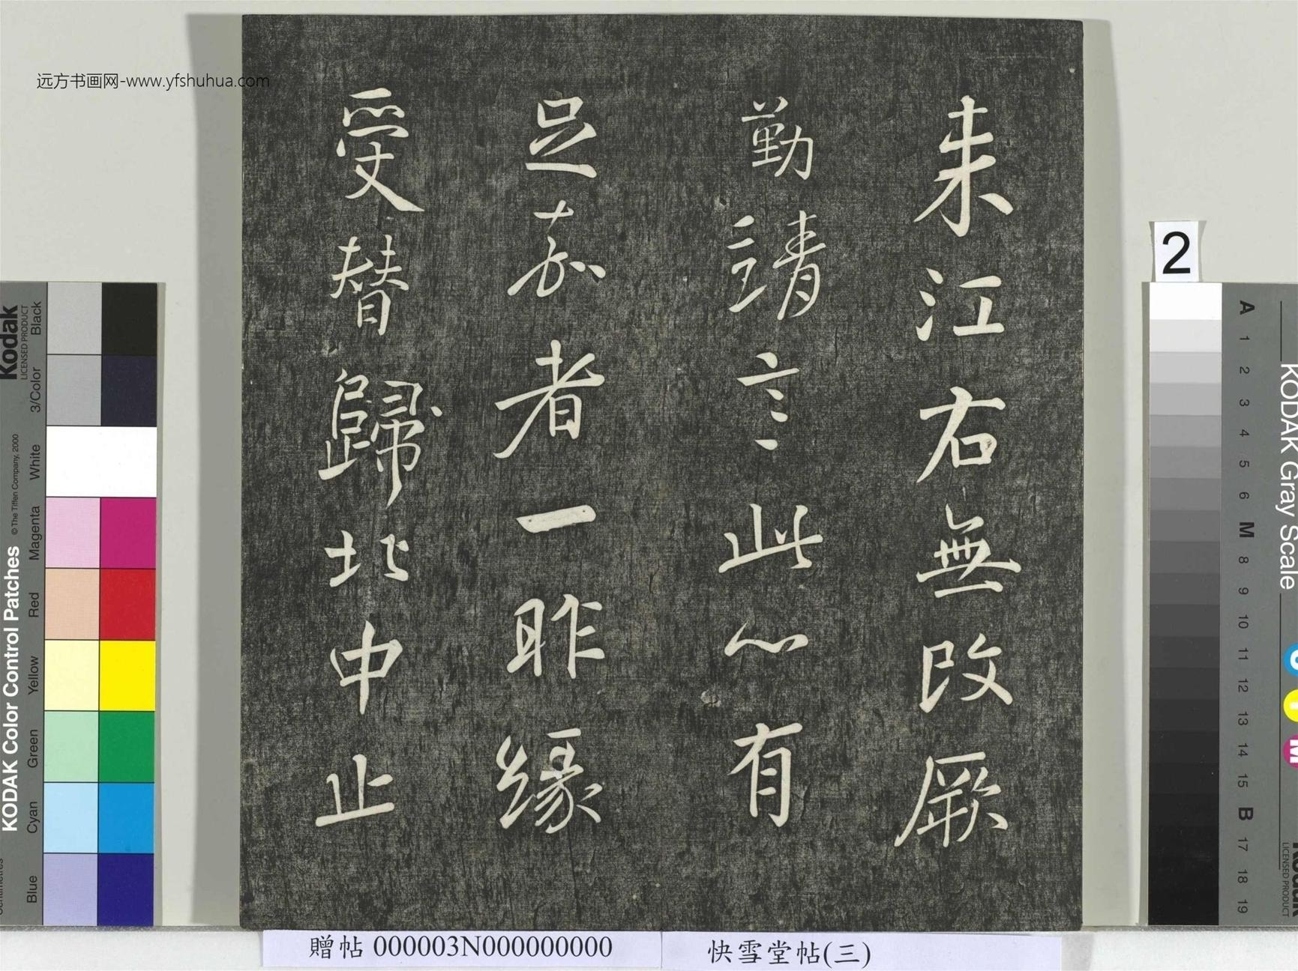 远方书画网-www.yfshuhua.com
来江右無改厥
勤請言此心有
足嘉者一昨緣
受替歸北中止
贈帖 000003N000000000
快雪堂帖(三)
2
Kodak
LICENSED PRODUCT
KODAK Color Control Patches
© The Tiffen Company, 2000
Black
3/Color
White
Magenta
Red
Yellow
Green
Cyan
Blue
KODAK Gray Scale
A
1
2
3
4
5
6
M
8
9
10
11
12
13
14
15
B
17
18
19
C
Y
M
Kodak
LICENSED PRODUCT